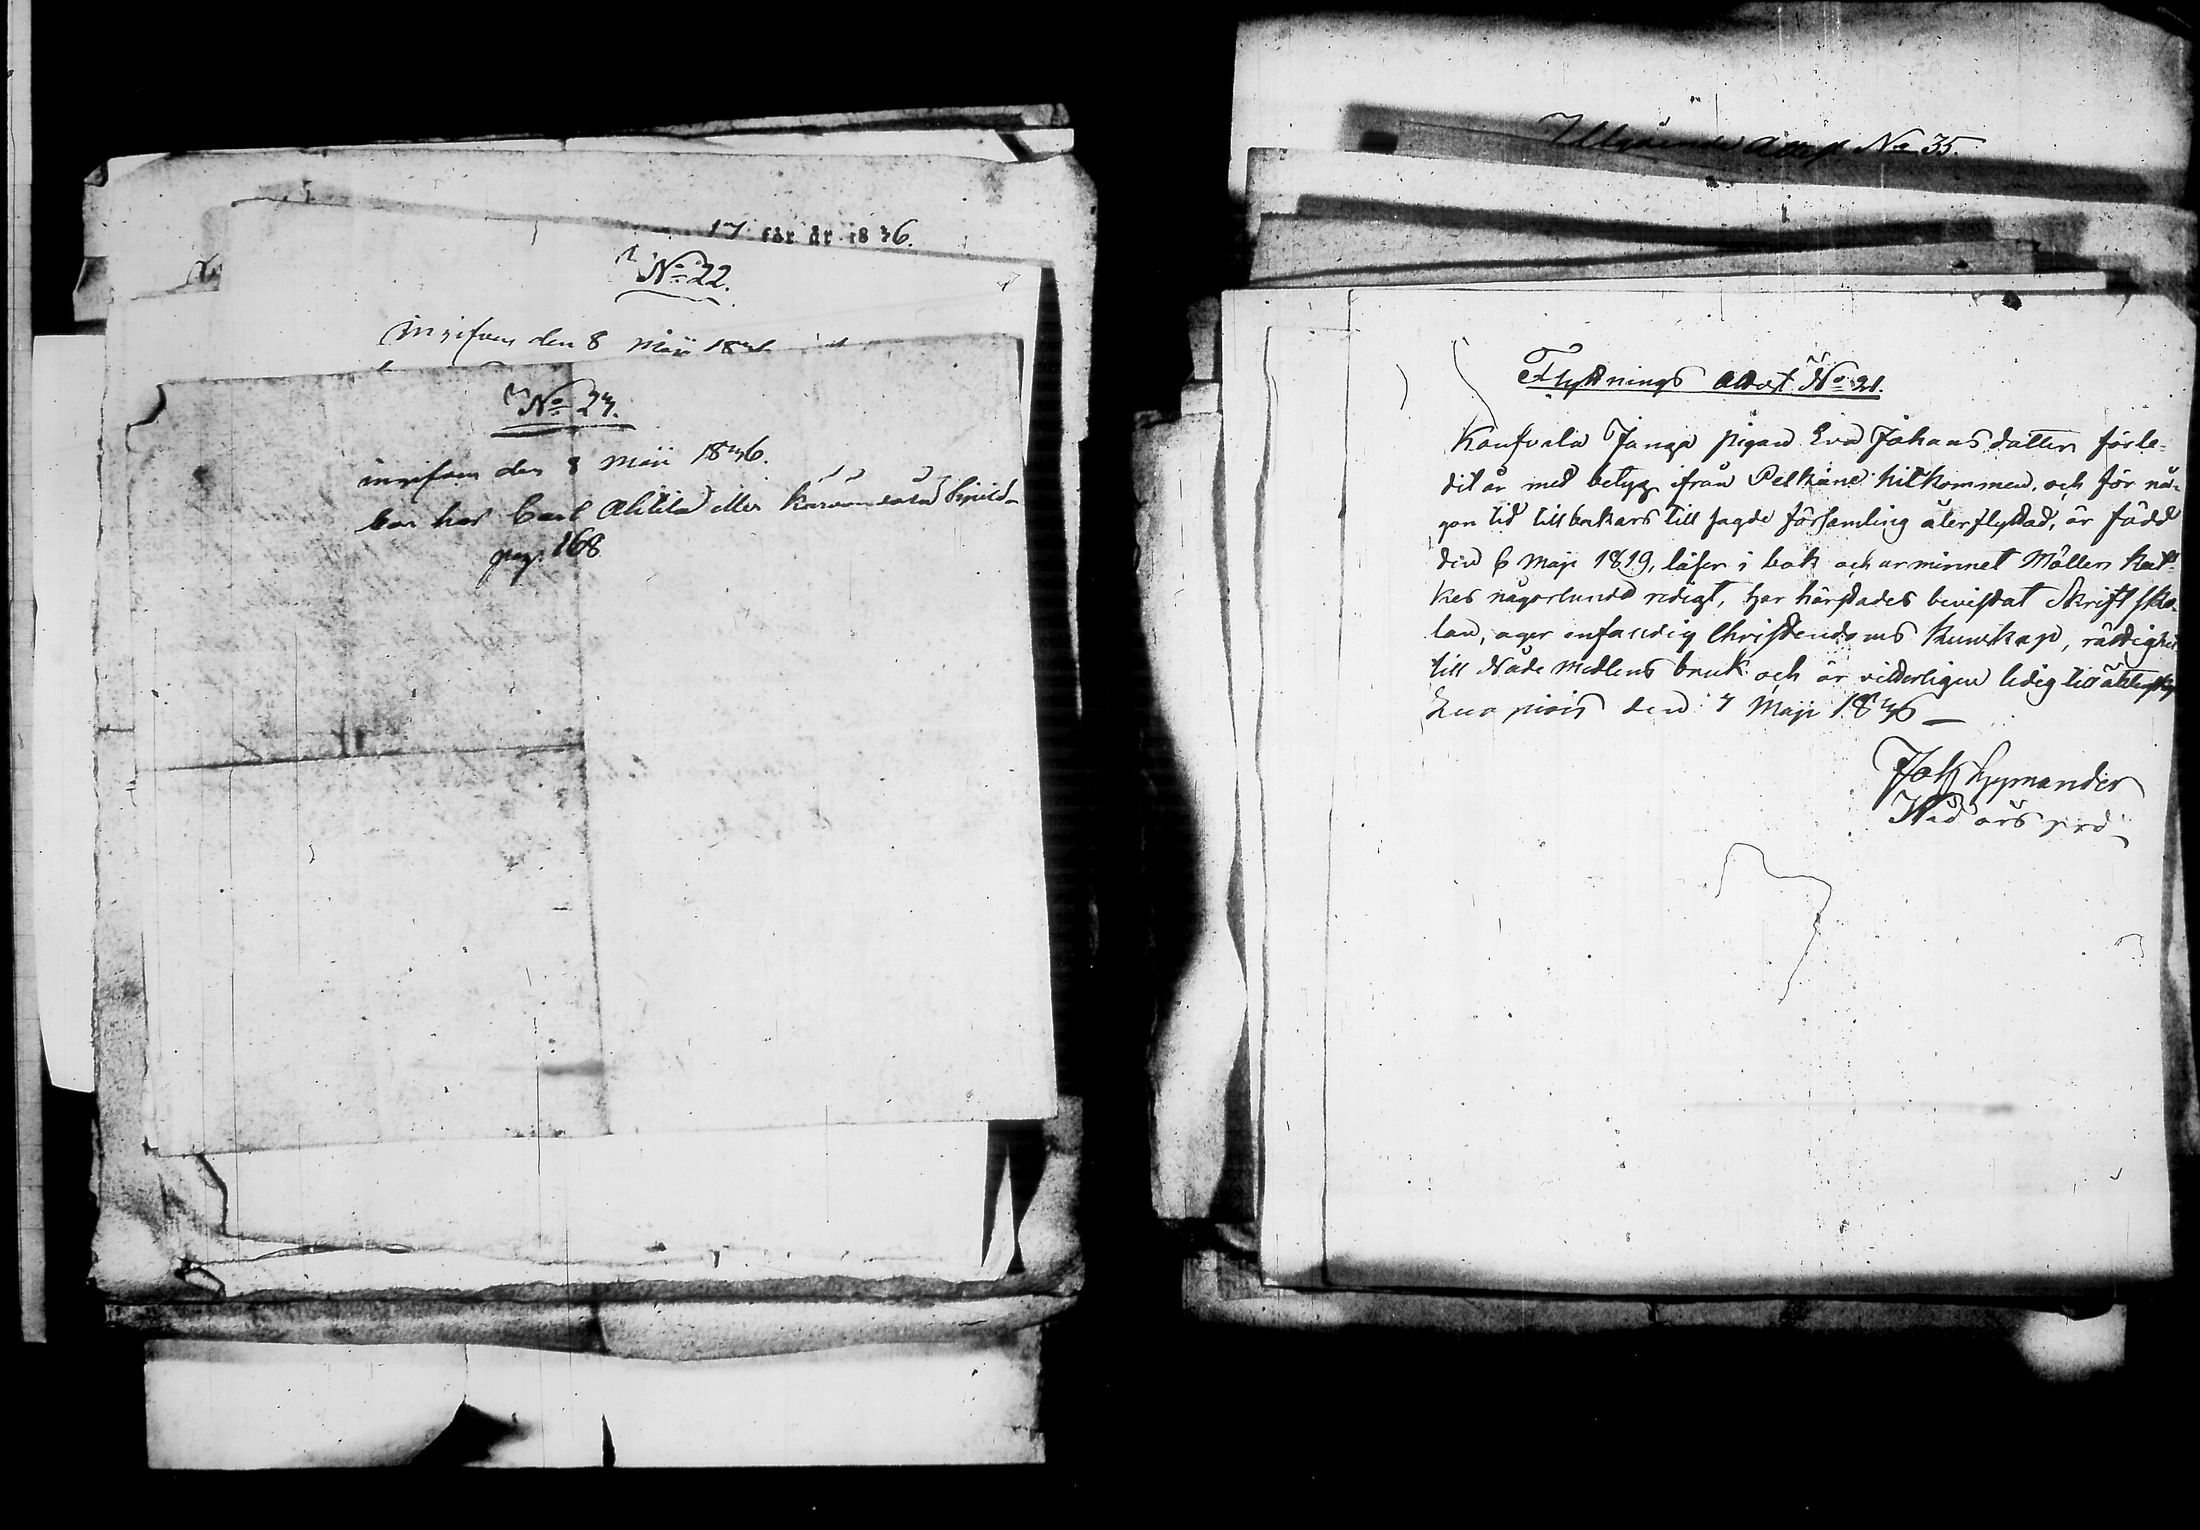 17 för år 1836.
No 22.
ingifven den 8 Maji
No 23.
ingifven den 8 Maii 1836.
bor hos Carl Alitila eller
pag. 168
Utgående Attest No 35.
Flyttnings Attest No 21.
Konfvala Junga pigan Eva Johans dotter förle-
dit år med betyg ifrån Pelkäne hitkommen, och för nå-
gon tid tillbakars till sagde församling återflyttad, är född
den 6 Maji 1819, läser i bok och ur minnet Möllers Kat-
kes någorlunda redigt, har härstädes bevistat Skriftsko-
lan, äger enfaldig Christendoms Kunskap, rättighet
till Nåde Medlens bruk och är vitterligen ledig till
den 7 Maji 1836
Lyymander